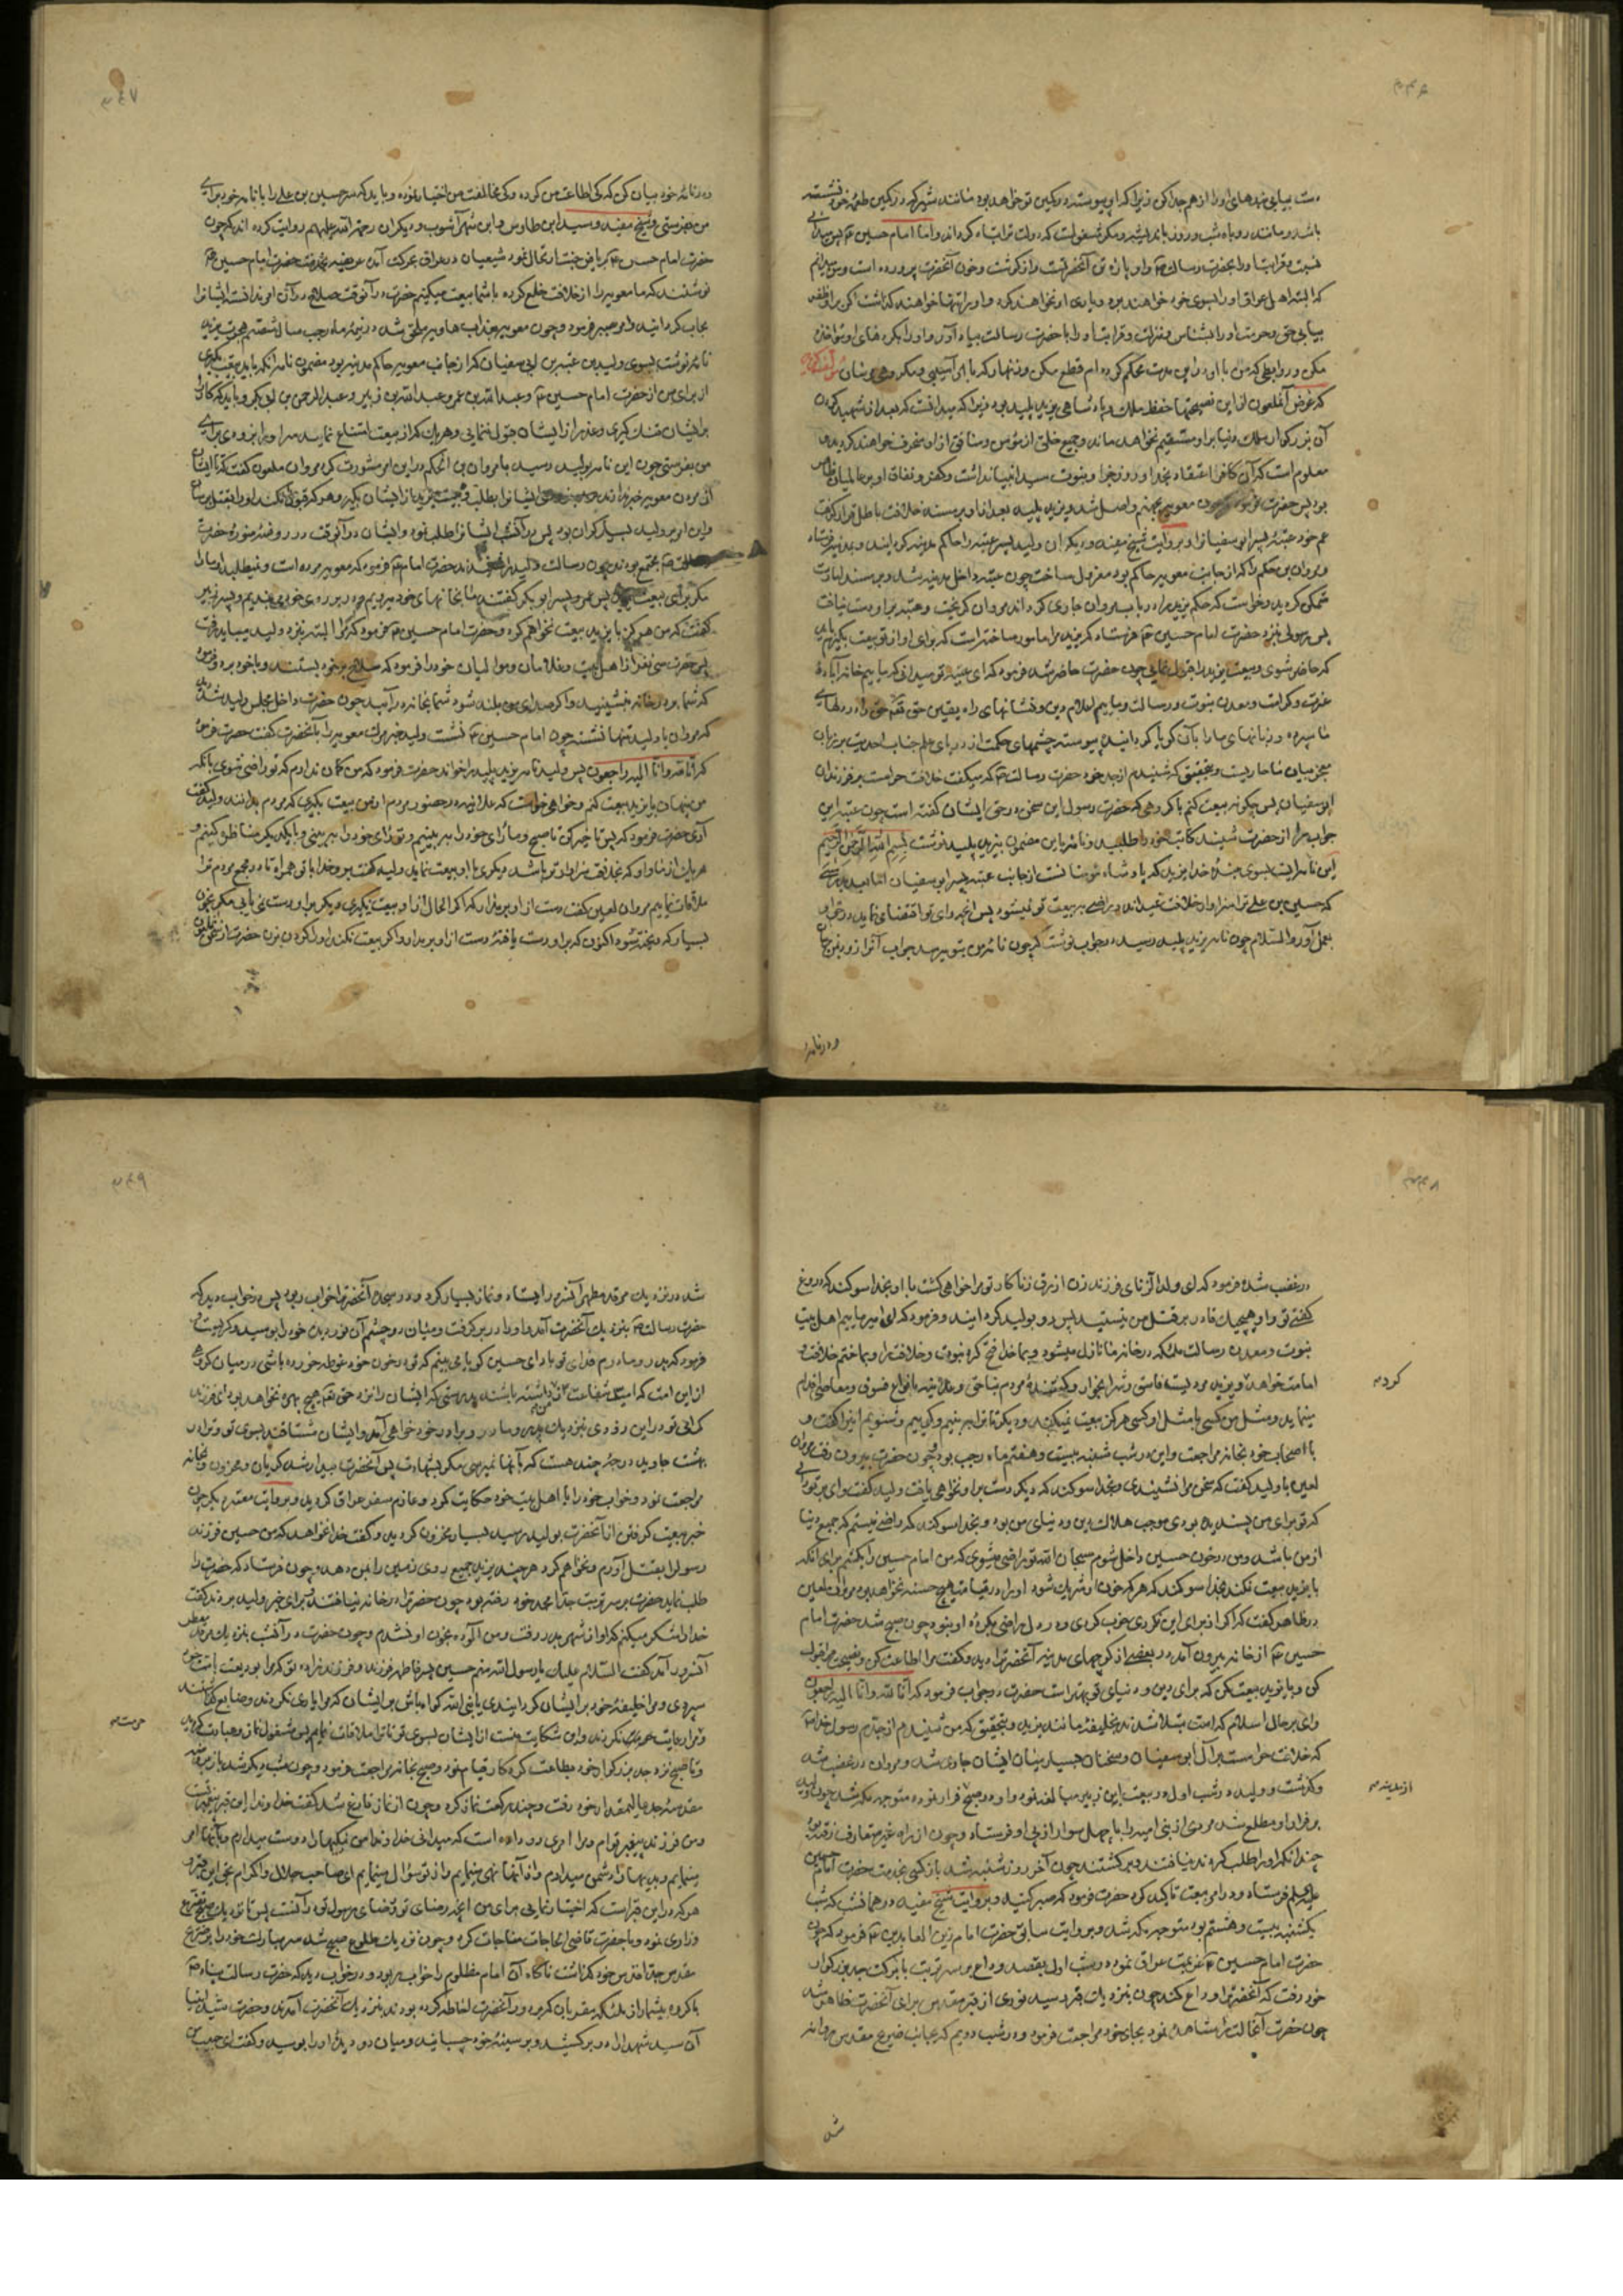 دست بیابی بندهای او را از هم جدا کن زیرا که او پیوسته در کمین تو خواهد بود مانند شیری که در کمین طعمهٔ خود نشسته
باشد و مانند روباه شب و روز با تو بر مکر مشغولست که دولت ترا تباه گرداند و اما امام حسین ع پس میدانی
نسبت و قرابت او را بحضرت رسالت ص و او پارهٔ تن آنحضرتست و از گوشت و خون آنحضرت پرورده است و من میدانم
که البته اهل عراق او را بسوی خود خواهند برد و یاری او نخواهند کرد و او را تنها خواهند گذاشت اگر بر او ظفر
بیابی حق و حرمت او را بشناس و منزلت و قرابت او را با حضرت رسالت بیاد آور و او را بکرده‌های او مؤاخذه
مکن و روابطی که من با او در این مدت محکم کرده‌ام قطع مکن و زنهار که باو آسیبی و مکروهی مرسان
که غرض آنملعون از این نصیحتها حفظ ملک و پادشاهی یزید پلید بود زیرا که میدانست که بعد از شهید کردن
آن بزرگوار ملک دنیا بر او مستقیم نخواهد ماند و جمیع خلق از مؤمن و منافق از او منحرف خواهند گردید و
معلوم است که آن کافر اعتقاد بخدا و روز جزا و بنوت سید انبیا نداشت و کفر و نفاق او بر عالمیان ظاهر
بود پس حضرت فرمود که چون معویه بجهنم واصل شد و یزید پلید بعد از او بر مسند خلافت باطل قرار گرفت
عم خود عتبه پسر ابو سفیانرا و بروایت شیخ مفید و دیگران ولید پسر عتبه را حاکم مدینه گردانید و بمدینه فرستاد
و مروان بن حکم را که از جانب معویه حاکم بود معزول ساخت چون عتبه داخل مدینه شد و بر مسند امارت
متمکن گردید و خواست که حکم یزید را در باب مروان جاری گرداند مروان گریخت و عتبه بر او دست نیافت
پس رسولی بنزد حضرت امام حسین ع فرستاد که یزید مرا مامور ساخته است که برای او از تو بیعت بگیرم باید
که حاضر شوی و بیعت یزید را قبول نمایی چون حضرت حاضر شد فرمود که ای عتبه تو میدانی که ما ییم خانه آبادهٔ
عزت و کرامت و معدن نبوت و رسالت و ما ییم اعلام دین و نشانهای راه یقین حق تع حق را در دلهای
ما سپرده و زبانهای ما را بآن گویا گردانیده پیوسته چشمهای حکمت از دریای علم جناب احدیت بر زبان
معجز بیان ما جاریست و بتحقیق که شنیدم از جد خود حضرت رسالت ص که میگفت خلافت حرامست بر فرزندان
ابو سفیان پس چگونه بیعت کنم با گروهی که حضرت رسول این سخن در حق ایشان گفته است چون عتبه این
جواب را از حضرت شنید کاتب خود را طلبید و نامه باین مضمون بیزید پلید نوشت بسم الله الرحمن الرحیم
این نامه ایست بسوی بندهٔ خدا یزید که پادشاه مؤمنانست از جانب عتبه پسر ابو سفیان اما بعد بدرستی
که حسین بن علی ترا سزاوار خلافت نمیداند و راضی به بیعت تو نمیشود پس آنچه رای تو اقتضا نماید در حق او
بعمل آور والسلام چون نامه بیزید پلید رسید در جواب نوشت که چون نامهٔ من بتو برسد جواب آنرا زود بنویس
و در نامهٔ
در نامهٔ خود بیان کن که کی اطاعت من کرده و کی مخالفت من اختیار نموده و باید که سر حسین بن علی را با نامه خود برای
من بفرستی و شیخ مفید و سید ابن طاوس و ابن شهرآشوب و دیگران رحمة الله علیهم روایت کرده‌اند که چون
حضرت امام حسن ع بریاض جنت ارتحال نمود شیعیان در عراق بحرکت آمده عریضه بخدمت حضرت امام حسین ع
نوشتند که ما معویه را از خلافت خلع کرده با شما بیعت میکنیم حضرت در آنوقت صلاح در آن امر ندانست ایشانرا
جواب گردانید و امر بصبر فرمود و چون معویه بعذاب هاویه ملحق شد در نیمهٔ ماه رجب سال شصت هجرت یزید
نامه نوشت بسوی ولید بن عتبه بن ابی سفیان که از جانب معویه حاکم مدینه بود مضمون نامه آنکه باید بیعت بگیری
از برای من از حضرت امام حسین ع و عبد الله بن عمر و عبد الله بن زبیر و عبد الرحمن بن ابی بکر و باید که کار را
بر ایشان تنک گیری و عذر از ایشان قبول ننمایی و هر یک که از بیعت امتناع نماید سر او را بزودی برای
من بفرستی چون این نامه بولید رسید با مروان بن الحکم در این امر مشورت کرد مروان ملعون گفت که تا ایشان
از مردن معویه خبر ندارند ایشانرا بطلب و بیعت یزید از ایشان بگیر و هر که قبول نکند او را بقتل برسان
و این امر بر ولید بسیار گران بود پس در آنشب ایشانرا طلب نمود و ایشان در آنوقت در روضهٔ منورهٔ حضرت
رسالت ص مجتمع بودند چون رسالت ولید را شنیدند حضرت امام ع فرمود که معویه مرده است و نمیطلبد او ما را
مگر برای بیعت پس عمر و پسر ابو بکر گفتند ما بخانهای خود میرویم و در بر روی خود می‌بندیم و پسر زبیر
گفت که من هرگز با یزید بیعت نخواهم کرد و حضرت امام حسین ع فرمود که مرا البته بنزد ولید میباید رفت
پس حضرت سی نفر از اهل بیت و غلامان و موالیان خود را فرمود که سلاح بر خود بستند و با خود برد و فرمود
که شما بر در خانه بنشینید و اگر صدای من بلند شود شما بخانه در آیید چون حضرت داخل مجلس ولید شد دید
که مروان با ولید تنها نشسته چون امام حسین ع نشست ولید خبر مرک معویه را بآنحضرت گفت حضرت فرمود
که انا لله و انا الیه راجعون پس ولید نامه یزید پلید را خواند حضرت فرمود که من گمان ندارم که تو راضی شوی بآنکه
من پنهان با یزید بیعت کنم و خواهی خواست که علانیه در حضور مردم از من بیعت بگیری که مردم بدانند ولید گفت
آری حضرت فرمود که پس تاخیر کن تا صبح و ما رای خود را ببینیم و تو رای خود را ببینی و با یکدیگر مناظره کنیم و
هر یک از ما و او که بخلافت سزاوارتر باشد دیگری با او بیعت نماید ولید گفت برو خدا با تو همراه تا در مجمع مردم ترا
ملاقات نماییم مروان لعین گفت دست از او بر مدار که اگر الحال از او بیعت نگیری دیگر بر او دست نمی‌یابی مگر خون
بسیار که ریخته شود اکنون که بر او دست یافتهٔ دست از او بر مدار و اگر بیعت نکند او را گردن بزن حضرت از سخن آن ملعون
در غضب شده فرمود که ای ولد الزنای فرزند زن ازرق زناکار تو مرا خواهی کشت یا او بخدا سوگند که دروغ
گفتی تو و او و هیچیک قادر بر قتل من نیستید پس رو بولید گردانید و فرمود که ای امیر ما ییم اهل بیت
نبوت و معدن رسالت ملائکه در خانه ما نازل میشود و بما خدا فتح کرد نبوت و خلافت را و بما ختم خلافت و
امامت خواهد و یزید مردیست فاسق و شرابخوار و کشندهٔ مردم بناحق و علانیه بانواع فسوق و معاصی اقدام
مینماید و مثل من کسی با مثل او کسی هرگز بیعت نمیکند و دیگر تا ترا ببینیم و گوییم و بشنویم اینرا گفت و
با اصحاب خود بخانه مراجعت و این در شب شنبه بیست و هفتم ماه رجب بود چون حضرت بیرون رفت مروان
کرد
لعین با ولید گفت که سخن مرا نشنیدی و بخدا سوگند که دیگر دست بر او نخواهی یافت ولید گفت وای بر تو رایی
که تو برای من پسندیده بودی موجب هلاک دین و دنیای من بود و بخدا سوگند که راضی نیستم که جمیع دنیا
از من باشد و من در خون حسین داخل شوم سبحان الله تو راضی میشوی که من امام حسین را بکشم برای آنکه
با یزید بیعت نکند بخدا سوگند که هر که خون او شریک شود او را در قیامت هیچ حسنه نخواهد بود مروان لعین
در ظاهر گفت که اگر از برای این نکردی خوب کردی و در دل راضی بکردهٔ او نبود چون صبح شد حضرت امام
حسین ع از خانه بیرون آمد در بعضی از کوچهای مدینه آنحضرت را دید و گفت مرا اطاعت کن و نصیحت مرا قبول
کن و با یزید بیعت کن که برای دین و دنیای تو بهتر است حضرت در جواب فرمود که انا لله و انا الیه راجعون
وای بر حال اسلام که امت مبتلا شدند بخلیفهٔ مانند یزید و بتحقیق که من شنیدم از جدم رسول خدا ص
که خلافت حرامست بر آل ابو سفیان و سخنان بسیار میان ایشان جاری شد و مروان در غضب شد
و گذشت و ولید در شب اول در بیعت ابن زبیر مبالغه نمود و او در صبح فرار نموده متوجه مکه شد چون ولید
از مدینه
بر فرار او مطلع شد مردی از بنی امیه را با چهل سوار از پی او فرستاد و چون از راه غیر متعارف رفته بود
چندانکه او را طلب کردند نیافتند و برگشتند چون آخر روز شنبه شد باز کسی بخدمت حضرت امام حسین
علیه السلم فرستاد و در امر بیعت تاکید کرد حضرت فرمود که صبر کنید و بروایت شیخ مفید در همانشب که شب
یکشنبه بیست و هشتم بود متوجه مکه شد و بروایت سابق حضرت امام زین العابدین ع فرمود که چون
حضرت امام حسین ع عزیمت عراق نموده در شب اول بقصد وداع بر سر تربت با برکت جد بزرگوار
خود رفت که آنحضرت را وداع کند چون بنزدیک قبر رسید نوری از قبر مقدس برای آنحضرت ظاهر شد
چون حضرت آنحالت را مشاهده نمود بجای خود مراجعت فرمود و در شب دویم که بجانب ضریح مقدس روانه
شد
شد در نزدیک مرقد مطهر آنسرور ایستاد و نماز بسیار کرد و در سجده آنحضرت را خواب ربود پس در خواب دید که
حضرت رسالت ص بنزدیک آنحضرت آمد و او را در بر گرفت و میان دو چشم آن نور دیدهٔ خود را بوسید و گریست و
فرمود که پدر و مادرم فدای تو باد ای حسین گویا می‌بینم که تو در خون خود غوطه خورده باشی در میان گروهی
از این امت که امید شفاعت از من داشته باشند بدرستی که ایشان را نزد حق تع هیچ بهره نخواهد بود ای فرزند
گرامی تو در این زودی بنزدیک پدر و مادر و برادر خود خواهی آمد و ایشان مشتاقند بسوی تو و ترا در
بهشت جاوید درجهٔ چند هست که بآنها نمیرسی مگر بشهادت پس آنحضرت بیدار شد گریان و محزون و بخانه
مراجعت نمود و خواب خود را با اهل بیت خود حکایت کرد و عازم سفر عراق گردید و بروایت معتبر دیگر چون
خبر بیعت گرفتن از آنحضرت بولید رسید بسیار محزون گردید و گفت خدا نخواهد که من حسین فرزند
رسولرا بقتل آورم و نخواهم کرد هر چند یزید جمیع روی زمین را بمن دهد و چون فرستاد که حضرت را
طلب نماید حضرت بر سر تربت جد امجد خود رفته بود چون حضرت را در خانه نیافتند و برای خبر ولید بردند گفت
خدا را شکر میکنم که او از شهر بدر رفت و من آلوده بخون او نشدم و چون حضرت در آنشب بنزدیک مرقد مطهر
آنسرور آمد گفت السلام علیک یا رسول الله منم حسین پسر فاطمه فرزند و فرزندزاده تو که مرا بودیعت بامت خود
سپردی و مرا خلیفهٔ خود بر ایشان گردانیدی یا نبی الله گواه باش بر ایشان که مرا یاری نکردند و ضایع گذاشتند
و مرا رعایت حرمت نکردند و این شکایت منست از ایشان بسوی تو تا ترا ملاقات نمایم پس مشغول نماز و عبادت گردید
حرمت
و تا صبح نزد جد بزرگوار خود بطاعت کردگار قیام نمود و صبح بخانه مراجعت فرمود و چون شب دیگر شد باز بمرقد
مقدس جد عالیمقدار خود رفت و چند رکعت نماز کرد و چون از نماز فارغ شد گفت خداوندا این قبر پیغمبر تست
و من فرزند پیغمبر توام و مرا امری رو داده است که میدانی خداوندا من نیکیها را دوست میدارم و بآنها امر
مینمایم و بدیها را دشمن میدارم و از آنها نهی مینمایم و از تو سؤال مینمایم ای صاحب جلال و اکرام بحق این قبر و
هر که در این قبر است که اختیار نمایی برای من آنچه رضای تو و رضای رسول تو در آنست پس تا نزدیک صبح تضرع
و زاری نمود و با حضرت قاضی الحاجات مناجات کرد و چون نزدیک طلوع صبح شد سر مبارک خود را بر ضریح
مقدس جد اقدس خود گذاشت ناگاه آن امام مظلوم را خواب ربود و در خواب دید که حضرت رسالت پناه ص
با گروه بیشمار از ملئکه مقربان که بر دور آنحضرت احاطه کرده بودند بنزدیک آنحضرت آمدند و حضرت سید انبیا
آن سید شهدا را در بر کشید و بر سینهٔ خود چسبانید و میان دو دیدهٔ او را بوسید و گفت ای حبیب من